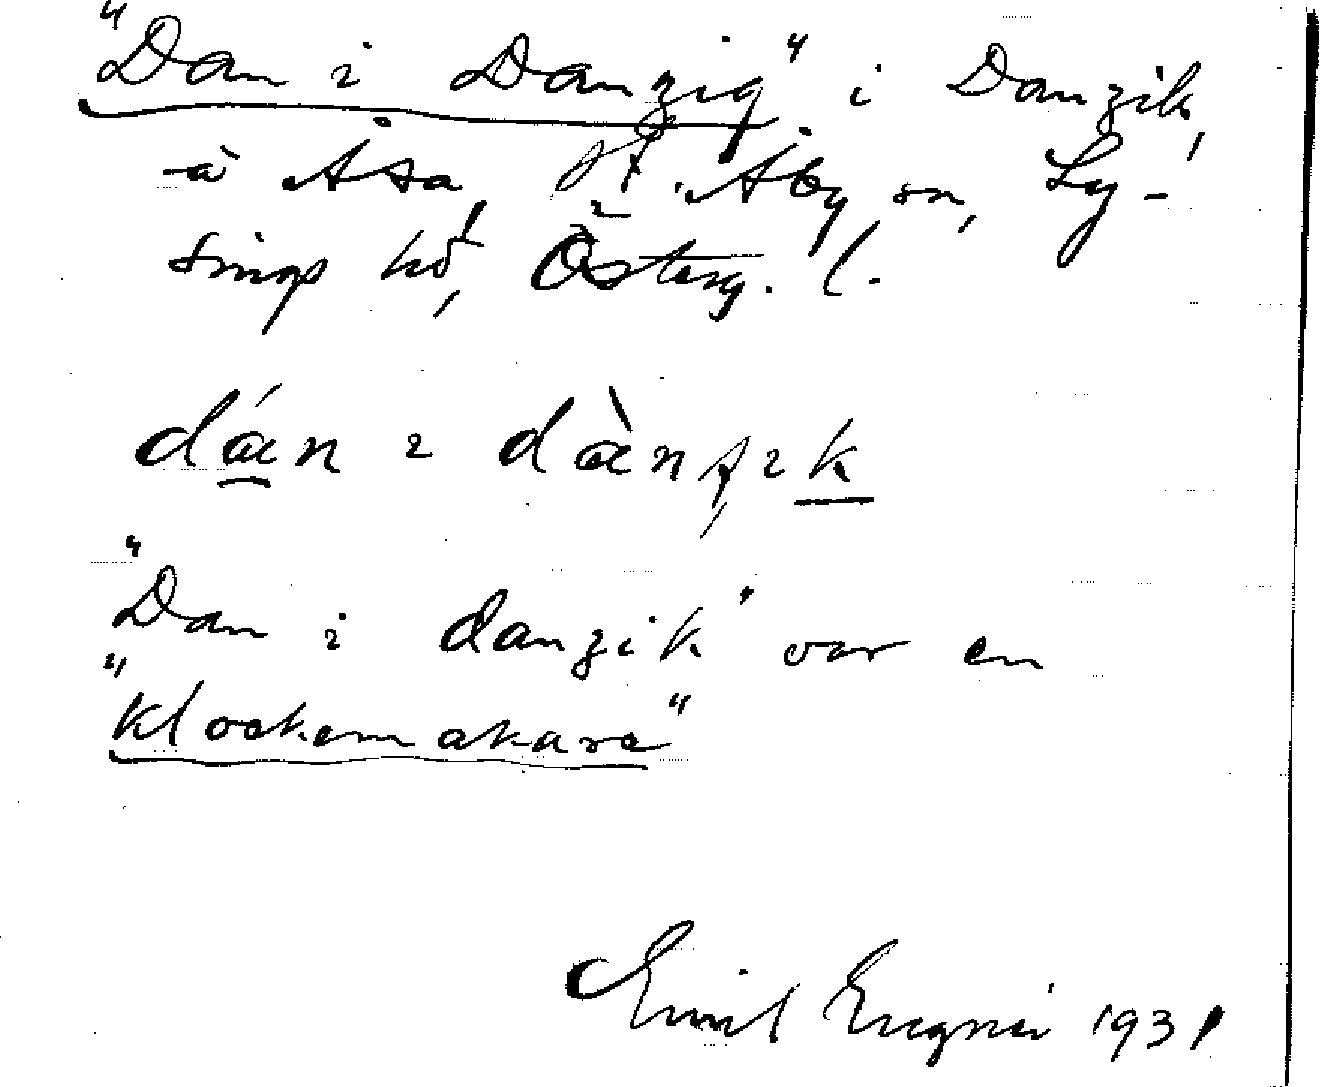 "Dan i Danzig" i Danzik,
å Åsa, St. Åby sn, Ly-
sings hd, Österg. l.
dán ı dànʂık
"Dan i danzik" var en
"klockemakare"
Emil Engner 1931